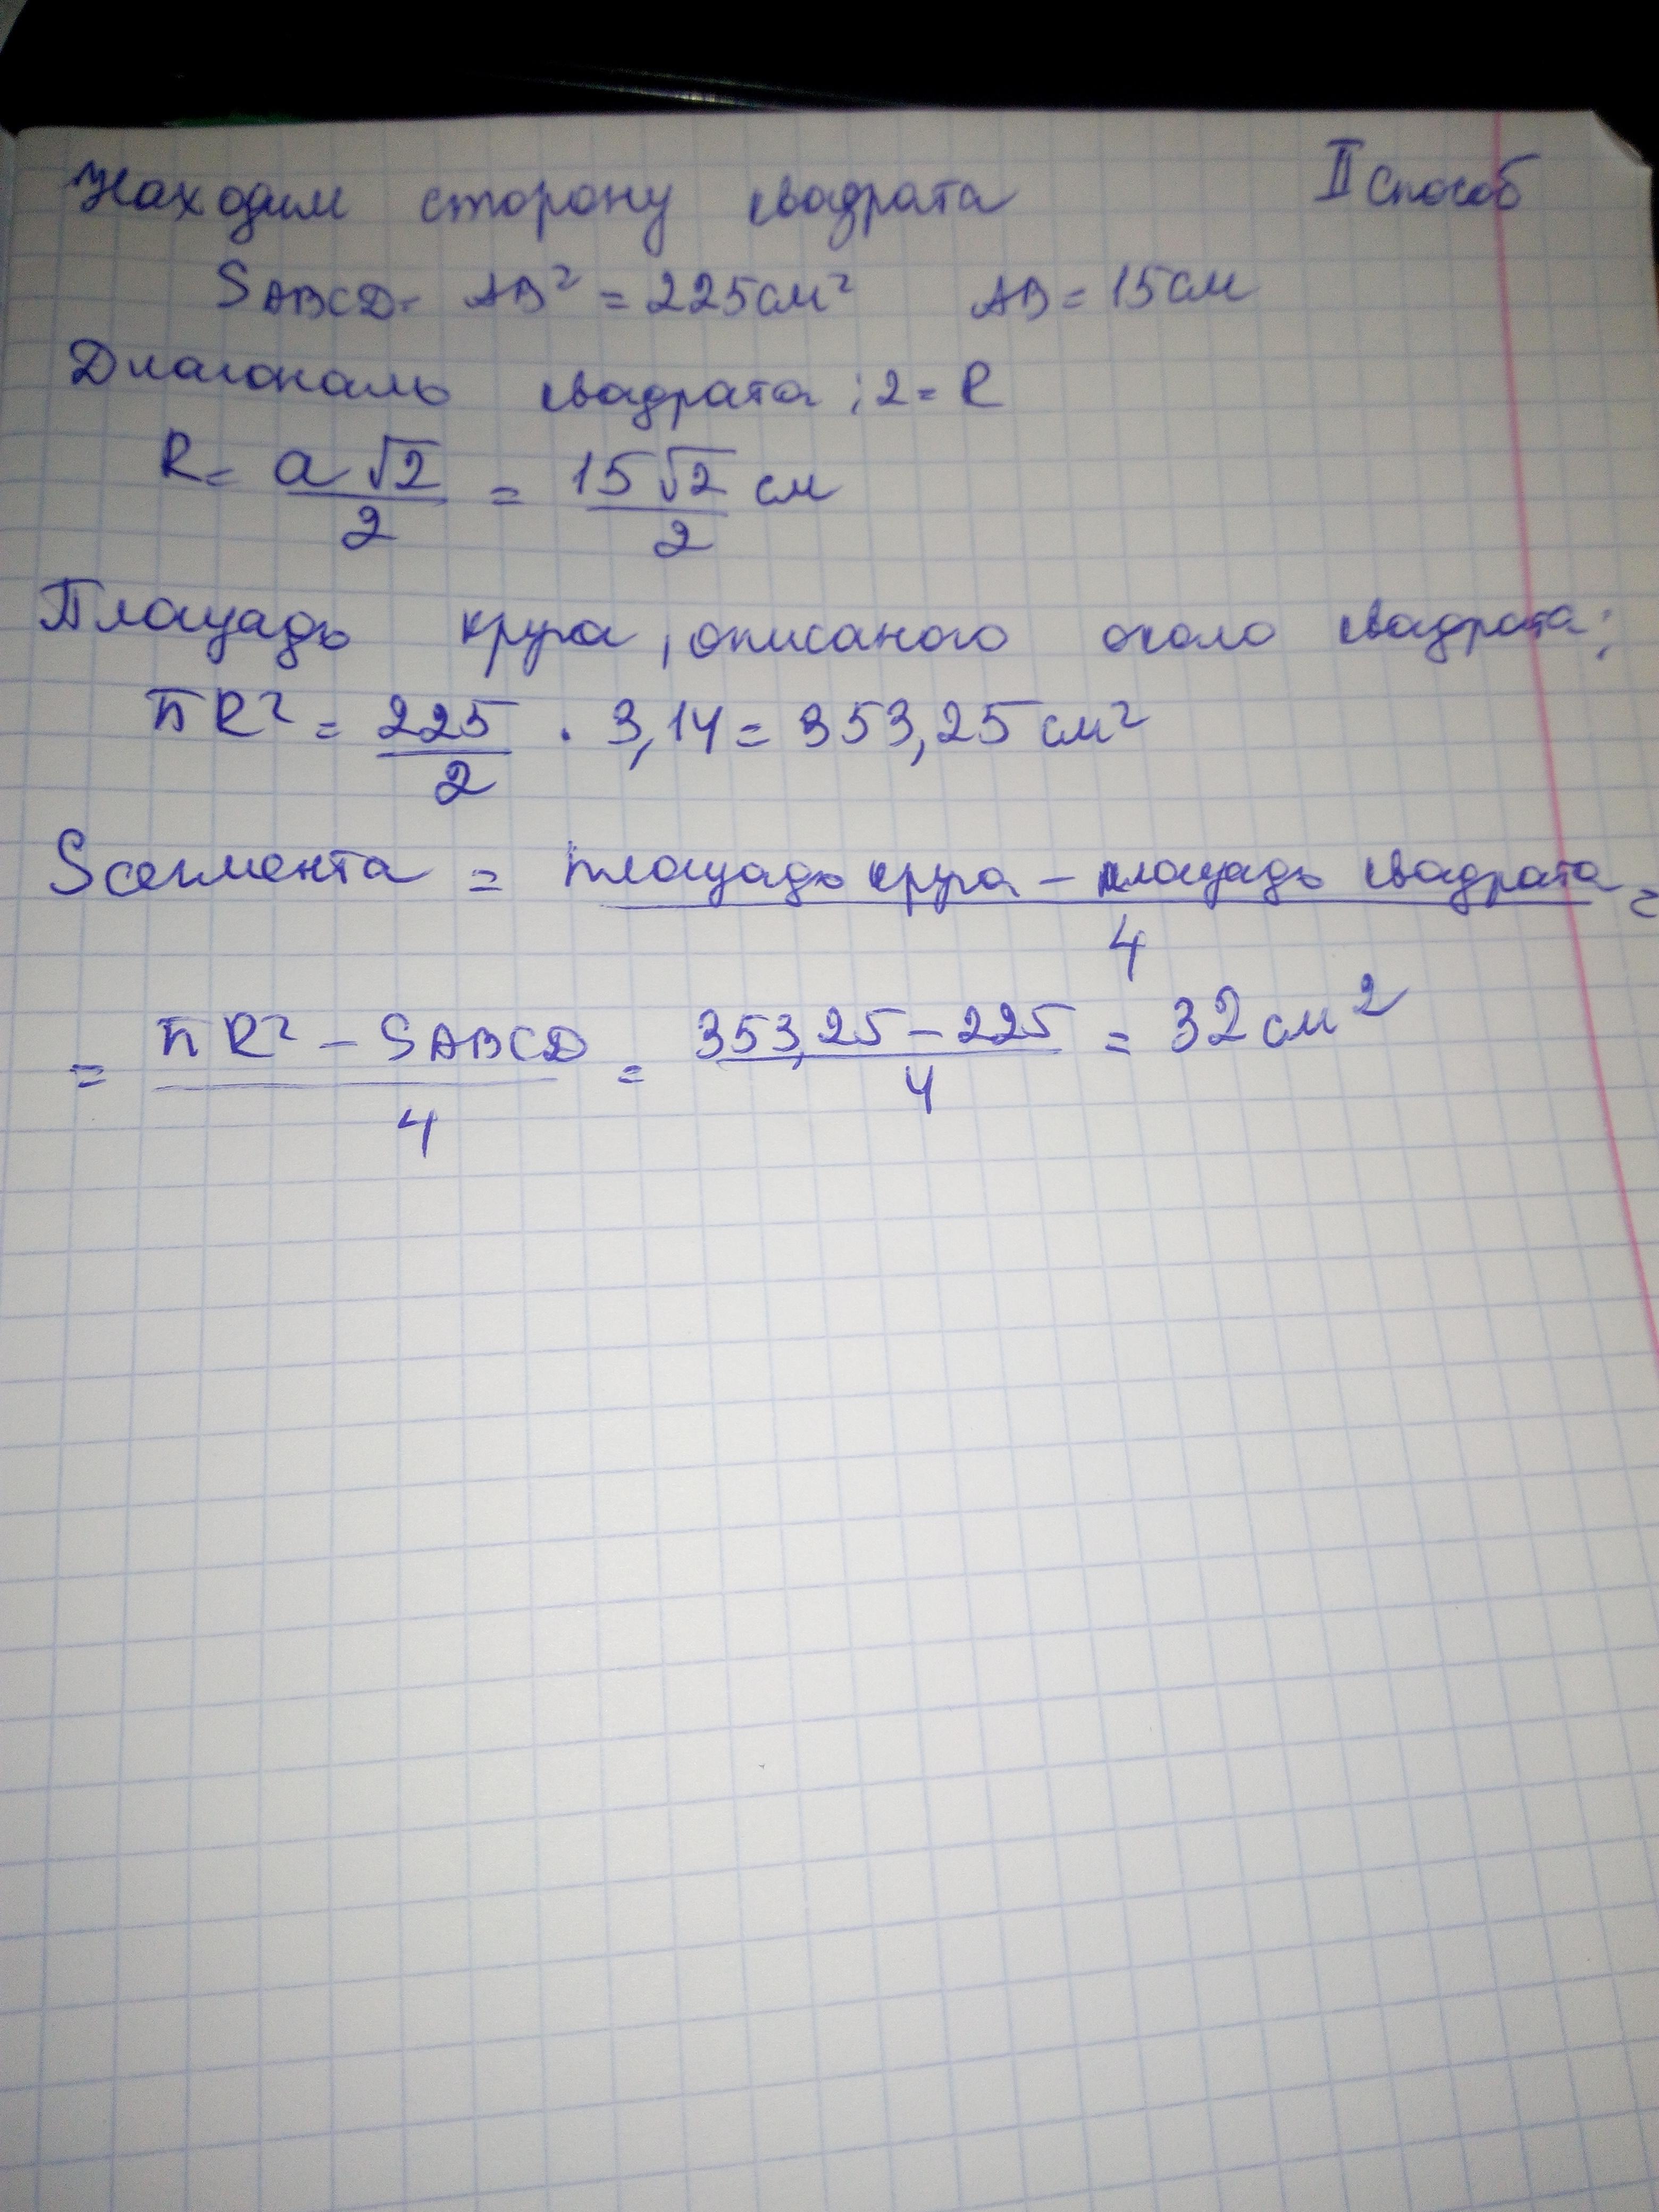 Находим сторону квадрата II способ
SABCD = AB² = 225 см² AB = 15 см
Диагональ квадрата : 2 = R
R = a√2/2 = 15√2/2 см
Площадь круга, описаного около квадрата:
πR² = 225/2 · 3,14 = 353,25 см²
Sсегмента = площадь круга – площадь квадрата / 4 =
= πR² – SABCD / 4 = 353,25 – 225 / 4 = 32 см²